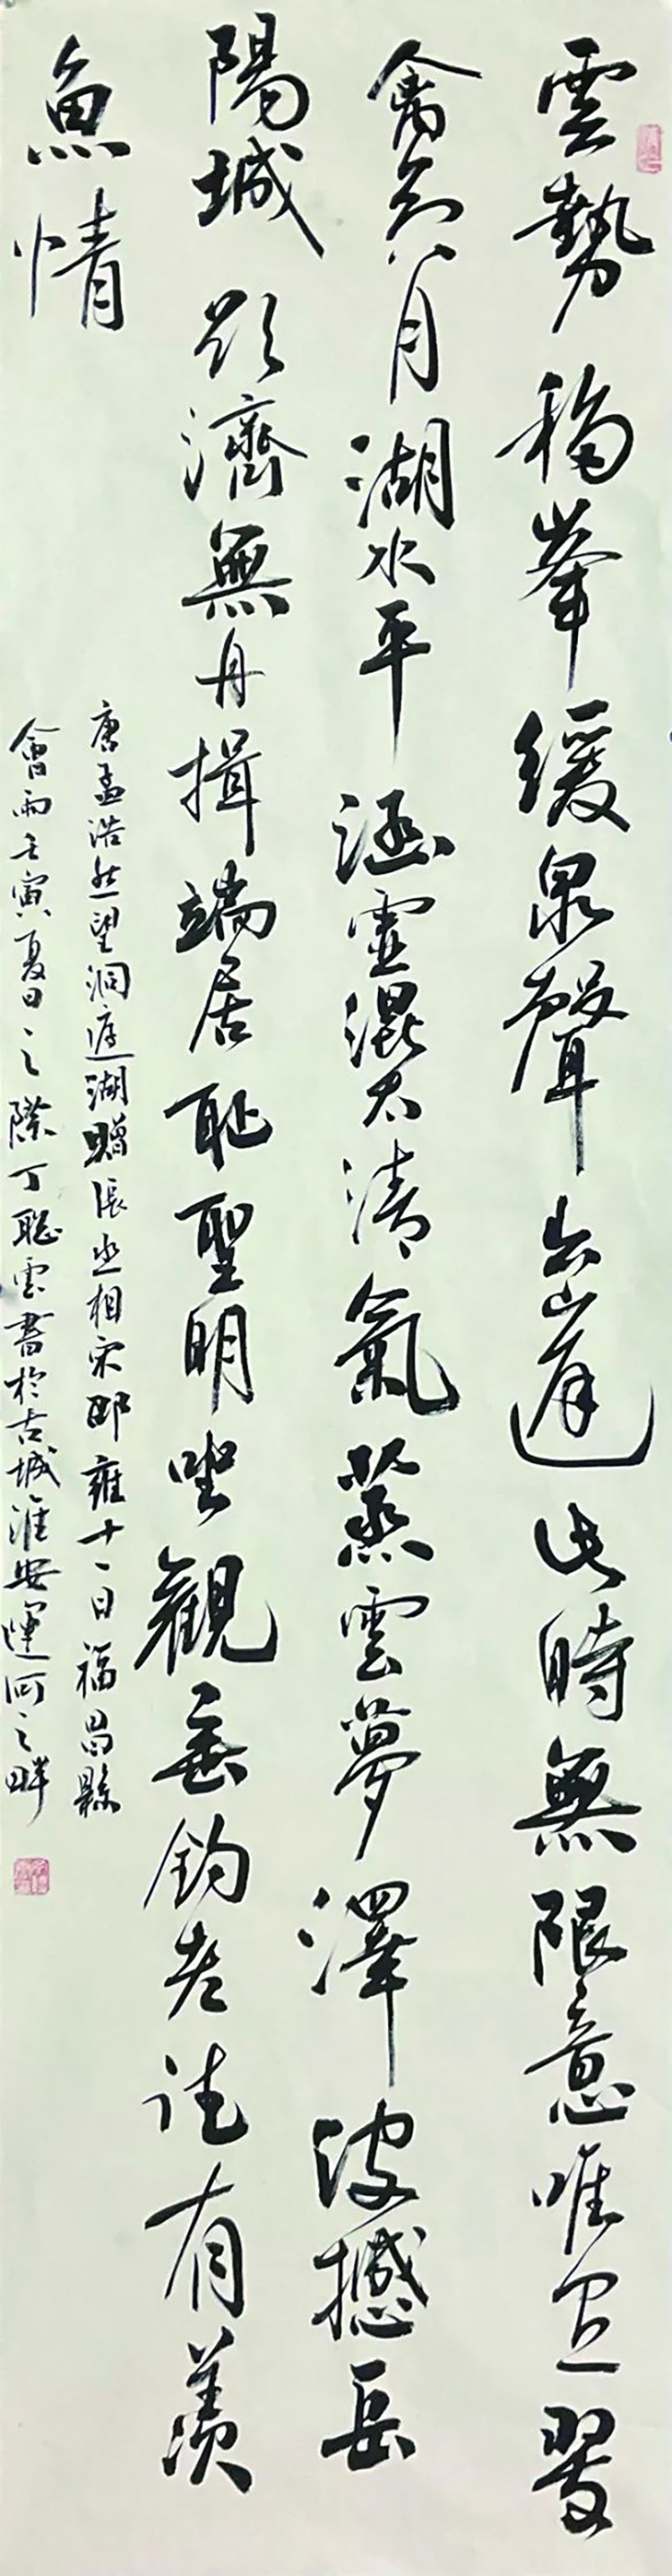 雲勢移峯緩泉聲出山遲此時無限意唯翠
禽知八月湖水平涵虛混太清氣蒸雲夢澤波撼岳
陽城欲濟無舟楫端居恥聖明坐觀垂釣者徒有羨
魚情
唐孟浩然望洞庭湖贈張丞相宋邵雍十一日福昌縣
會雨壬寅夏日之際丁聰雲書於古城淮安運河之畔